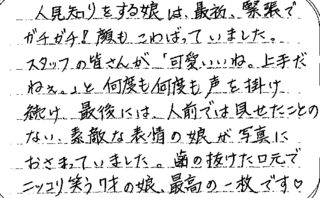 人見知りをする娘は、最初、緊張で
ガチガチ!顔もこわばっていました。
スタッフの皆さんが「可愛いいね。上手だ
ねぇ。」と何度も何度も声を掛け
続け、最後には、人前では見せたことの
ない、素敵な表情の娘が写真に
おさまっていました。歯の抜けた口元で
ニッコリ笑う7才の娘、最高の一枚です♡